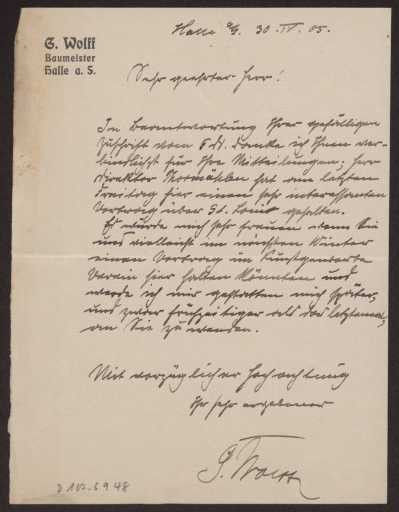 G. Wolff
Baumeister
Halle a. S.
Halle a/S. 30. IV. 05.
Sehr geehrter Herr!
In Beantwortung Ihrer gefälligen
Zuschrift vom 6 ds. danke ich Ihnen ver-
bindlichst für Ihre Mitteilungen; Herr
Direktor Thormählen hat am letzten
Freitag hier einen sehr interessanten
Vortrag über St. Louis gehalten.
Es würde mich sehr freuen wenn Sie
uns vielleicht im nächsten Winter
einen Vortrag im Kunstgewerbe
Verein hier halten könnten und
werde ich mir gestatten mich später,
und zwar frühzeitiger als das letztemal,
an Sie zu wenden.
Mit vorzüglicher Hochachtung
Ihr sehr ergebener
G. Wolff